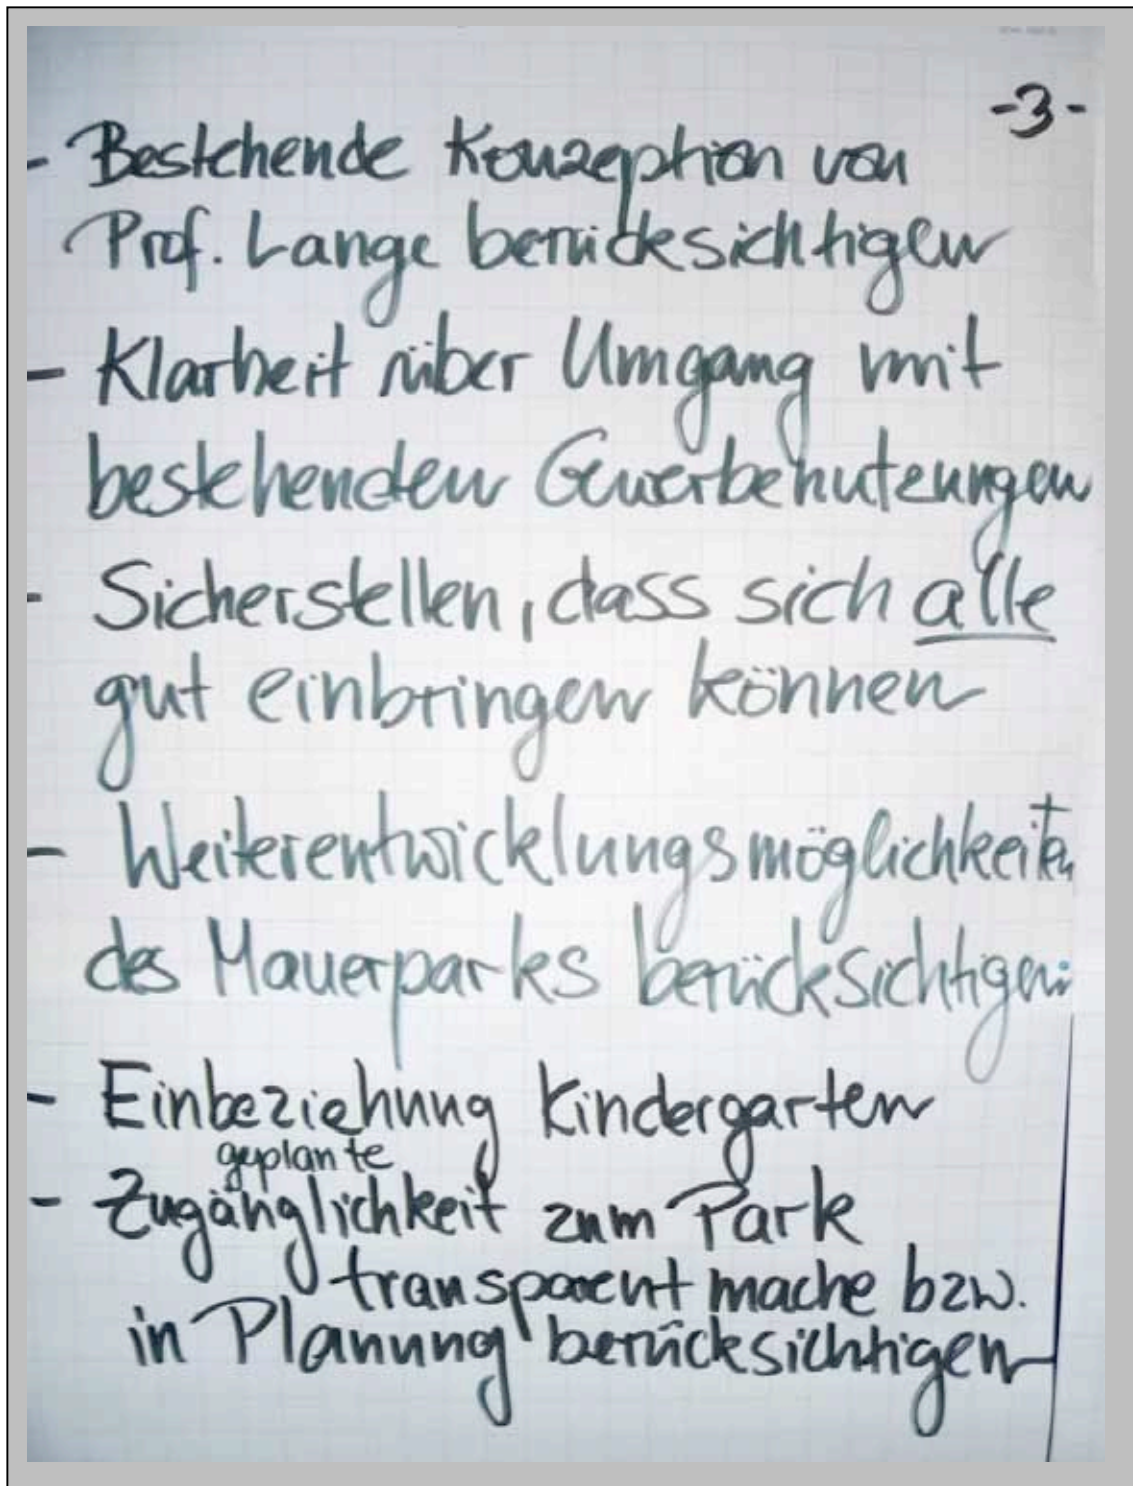 -3-
- Bestehende Konzeption von
Prof. Lange berücksichtigen
- Klarheit über Umgang mit
bestehenden Gewerbenutzungen
- Sicherstellen, dass sich alle
gut einbringen können
- Weiterentwicklungsmöglichkeiten
des Mauerparks berücksichtigen
- Einbeziehung Kindergarten
geplante
- Zugänglichkeit zum Park
transparent mache bzw.
in Planung berücksichtigen